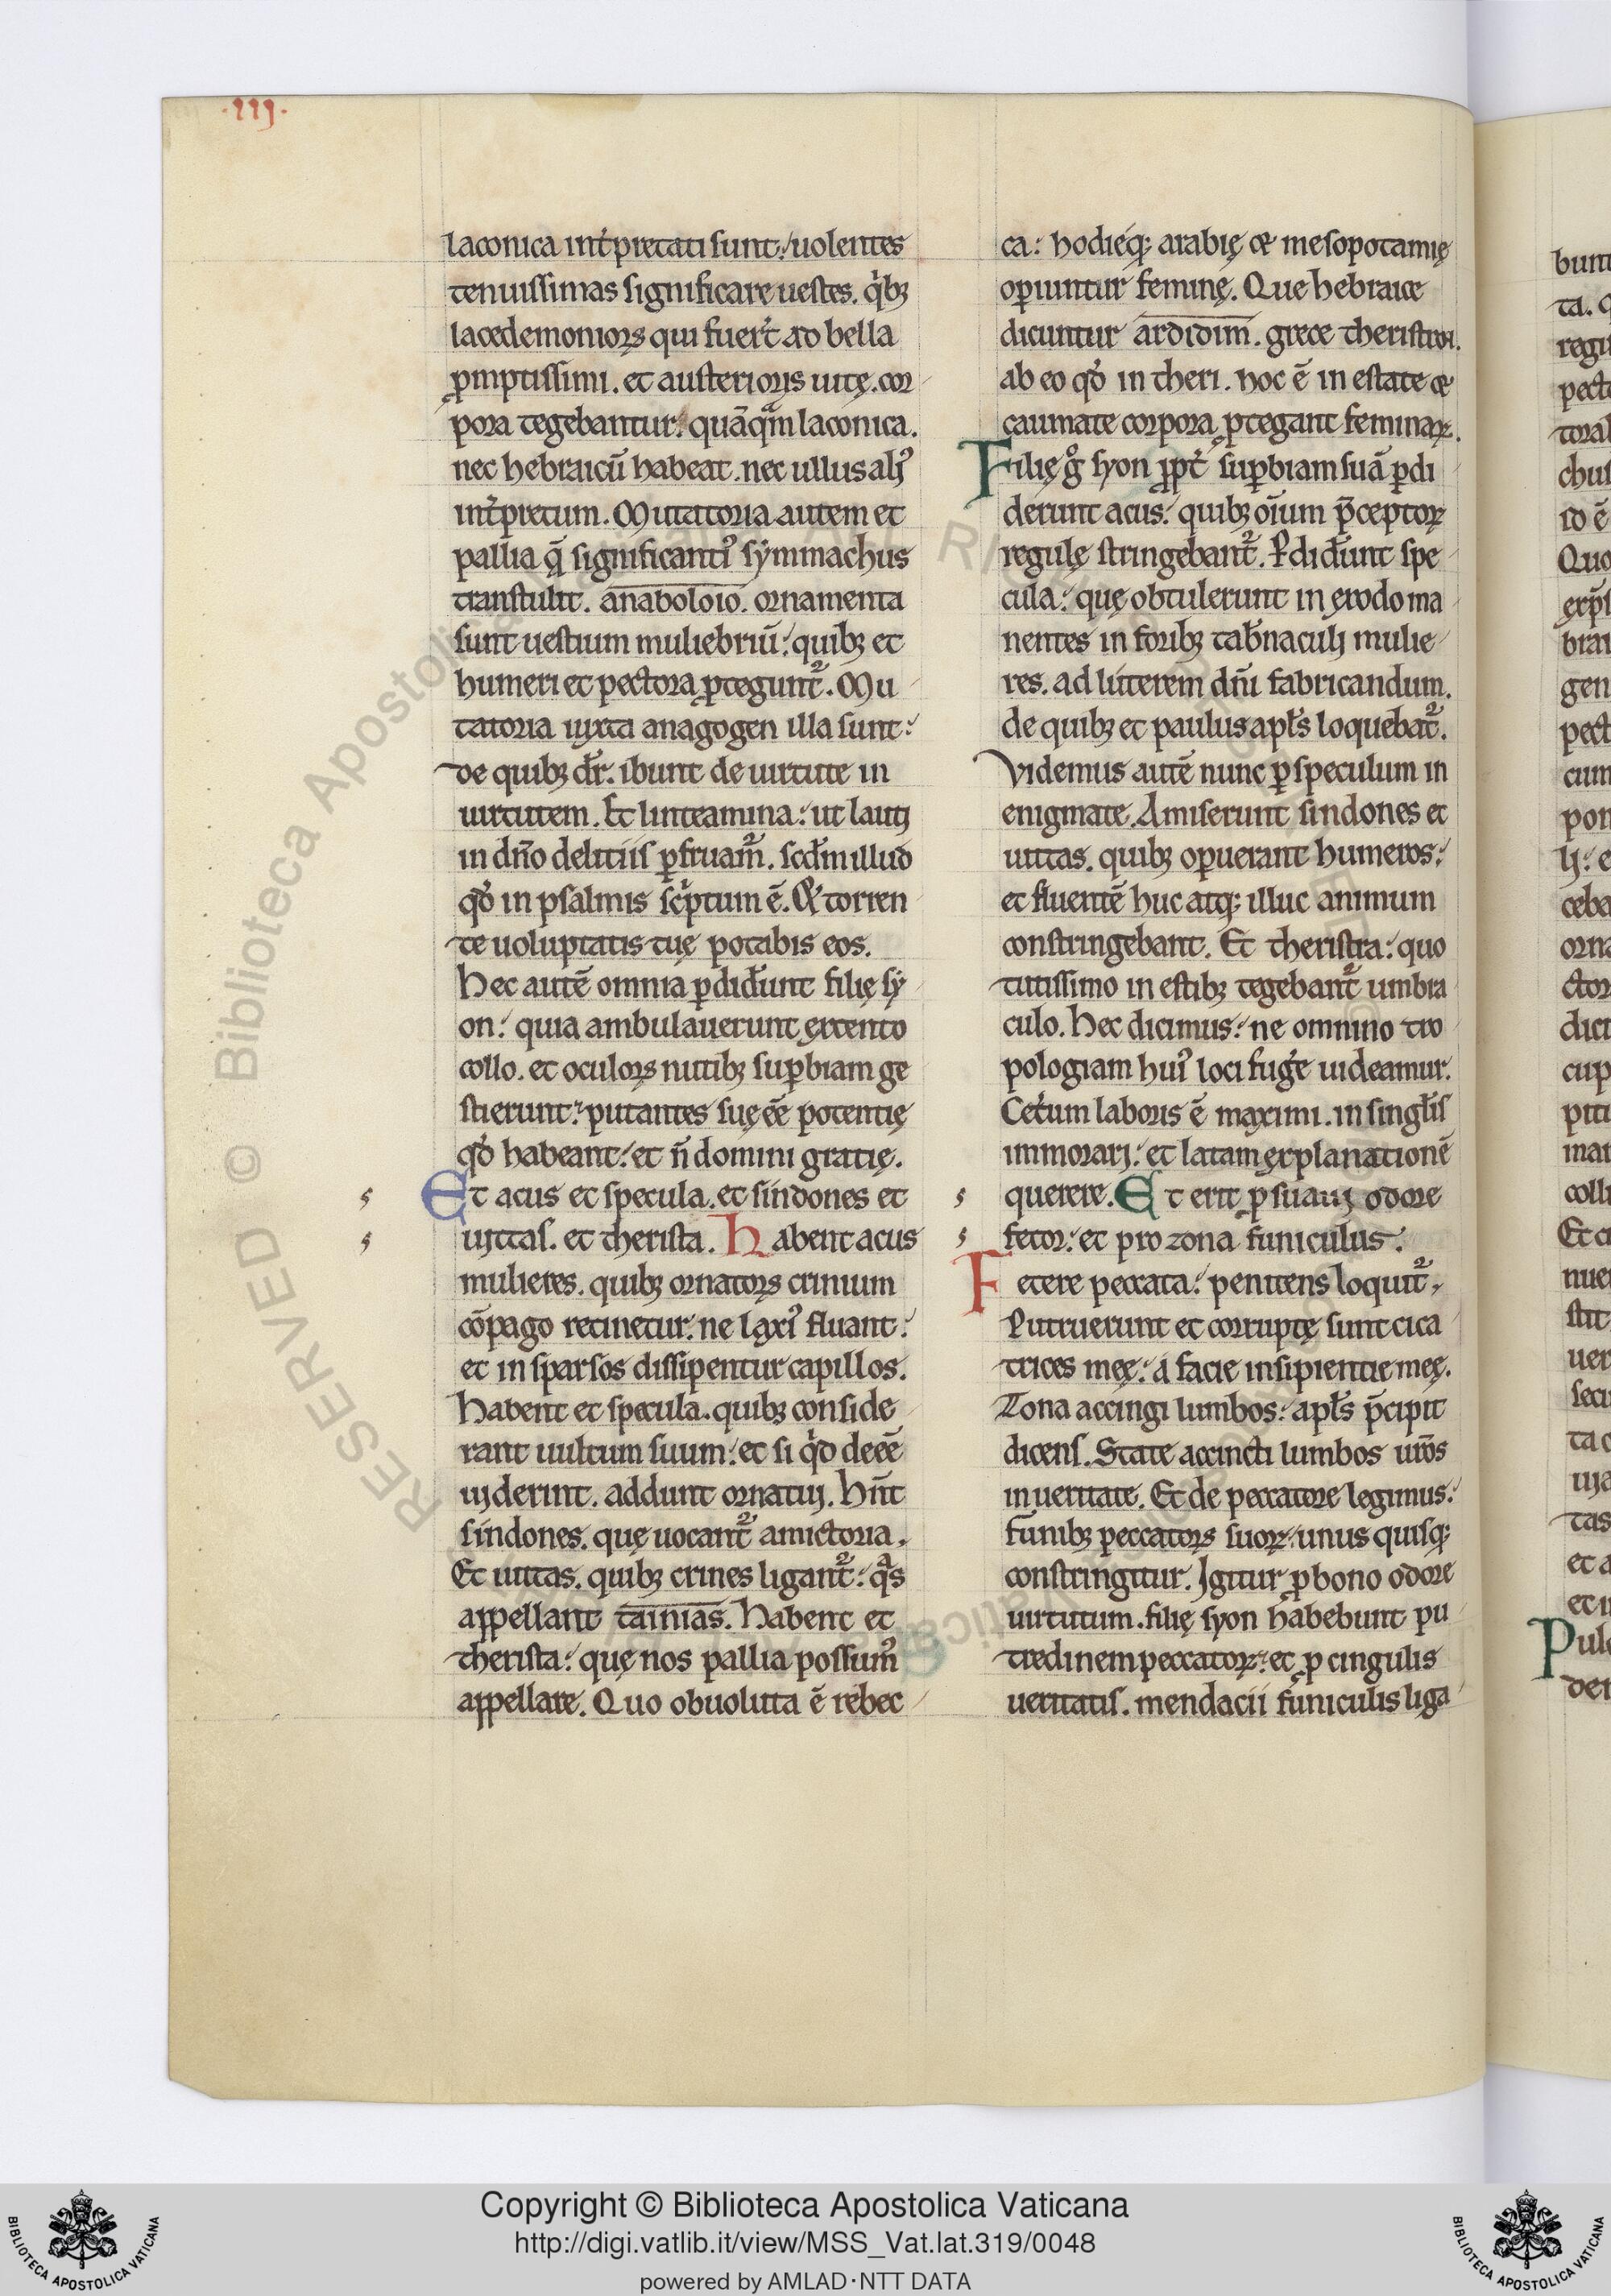 .iij.
laconica int̾pretati sunt: uolentes
tenuissimas significare uestes. qͥbꝫ
lacedemonioꝝ qui fuer̾t ad bella
ꝓmptissimi. et austerioris uitę. cor
pora tegebantur. quāqͣm laconica.
nec hebraicū habeat. nec ullus aliꝰ
int̾pretum. Mutatoria autem et
pallia q̄ significantiꝰ sẏmmachus
transtulit. anaboloio. ornamenta
sunt uestium muliebriū: quibꝫ et
humeri et pectora ꝓtegunt᷑. Mu
tatoria iuxta anagogen illa sunt:
de quibꝫ dr̄. ibunt de uirtute in
uirtutem. Et linteamina: ut lauti
in dn̄o delitiis ꝑfruam᷑. scd̄m illud
qd̾ in psalmis scͥptum ē. Et torren
te uoluptatis tuę potabis eos.
Hec autē omnia ꝑdider̄unt filię sẏ
on: quia ambulauerunt extento
collo. et oculoꝝ nutibꝫ suꝑbiam ge
stierunt: putantes suę eē̄ potentię
qd̾ habeant: et n̄ domini gratię.
Et acus et specula. et sindones et
uittas. et therista. Habent acus
mulieres. quibꝫ ornatoꝝ crinium
cōpago retinetur: ne laxiꝰ fluant:
et in sparsos dissipentur capillos.
Habent et specula. quibꝫ conside
rant uultum suum: et si qͥd deeē̄
uiderint. addunt ornatui. Hn̄t
sindones. quę uocant᷑ amictoria.
Et uittas. quibꝫ crines ligant᷑: qͣs
appellant tainias. Habent et
therista: quę nos pallia possumꝰ
appellare. Quo obuoluta ē rebec
ca: hodieqꝫ arabię et mesopotamię
oꝑiuntur feminę. Que hebraice
dicuntur ardidim. grece theristron.
ab eo qd̾ in theri. hoc ē in estate et
caumate corpora ꝓtegant feminaꝝ.
Filię gͦ syon ꝓpt̾ suꝑbiam suā ꝑdi
derunt acus: quibꝫ oīum p̄ceptoꝝ
regulę stringebant᷑. Perdider̄unt spe
cula: quę obtulerunt in exodo ma
nentes in foribꝫ tab̾naculi mulie
res. ad luterem dn̄i fabricandum.
de quibꝫ et paulus apl̄s loquebat᷑.
Videmus autē nunc ꝑ speculum in
enigmate. Amiserunt sindones et
uittas. quibꝫ oꝑuerant humeros:
et fluentē huc atqꝫ illuc animum
constringebant. Et theristra: quo
tutissimo in estibꝫ tegebant᷑ umbra
culo. Hec dicimus: ne omnino tro
pologiam huiꝰ loci fug̾e uideamur.
Cet̾um laboris ē maximi. in singl̄is
immorari: et latam explanationē
querere. Et erit ꝓ suaui odore
fetor: et pro zona funiculus.
Fetere peccata: penitens loquit᷑.
Putruerunt et corruptę sunt cica
trices meę: a facie insipientie meę.
Zona accingi lumbos: apl̄s p̄cipit
dicens. State accincti lumbos ur̄os
in ueritate. Et de peccatore legimus:
funibꝫ peccatoꝝ suoꝝ: unus quisqꝫ
constringitur. Igitur ꝓ bono odore
uirtutum. filię syon habebunt pu
tredinem peccatoꝝ: et ꝓ cingulis
ueritatis. mendacii funiculis liga
Copyright © Biblioteca Apostolica Vaticana
http://digi.vatlib.it/view/MSS_Vat.lat.319/0048
powered by AMLAD·NTT DATA